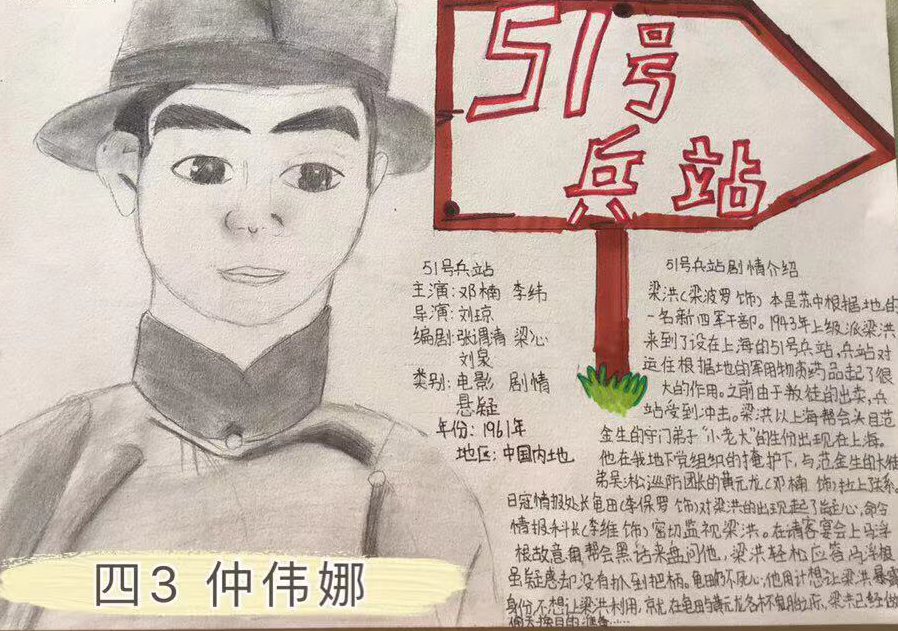 51号
兵站
51号兵站
主演:邓楠 李纬
导演:刘琼
编剧:张渭清 梁心
刘泉
类别:电影 剧情
悬疑
年份:1961年
地区:中国内地
51号兵站剧情介绍
梁洪(梁波罗 饰)本是苏中根据地的
一名新四军干部。1943年上级派梁洪
来到了设在上海的51号兵站,兵站对
运往根据地的军用物资药品起了很
大的作用。之前由于叛徒的出卖,兵
站受到冲击。梁洪以上海帮会头目范
金生的守门弟子“小老大”的身份出现在上海。
他在我地下党组织的掩护下,与范金生的大徒
弟吴淞巡防团长的黄元龙(邓楠 饰)拉上关系。
日寇情报处长龟田(李保罗 饰)对梁洪的出现起了疑心,命令
情报科长(李维 饰)密切监视梁洪。在请客宴会上马浮
根故意用帮会黑话来盘问他,梁洪轻松应答,马浮根
虽疑惑却没有抓到把柄。龟田仍不死心,他用计想让梁洪暴露
身份,不想让梁洪利用,就在龟田与黄元龙各怀鬼胎之际,梁洪已经做
偷天换日的准备……
四3 仲伟娜